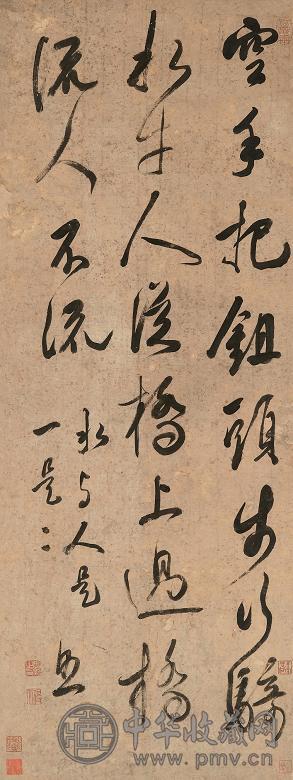 空手把鉏頭步行騎
水牛人從橋上過橋
流人不流
水与人是
一是二
中华收藏网
www.pmv.cn